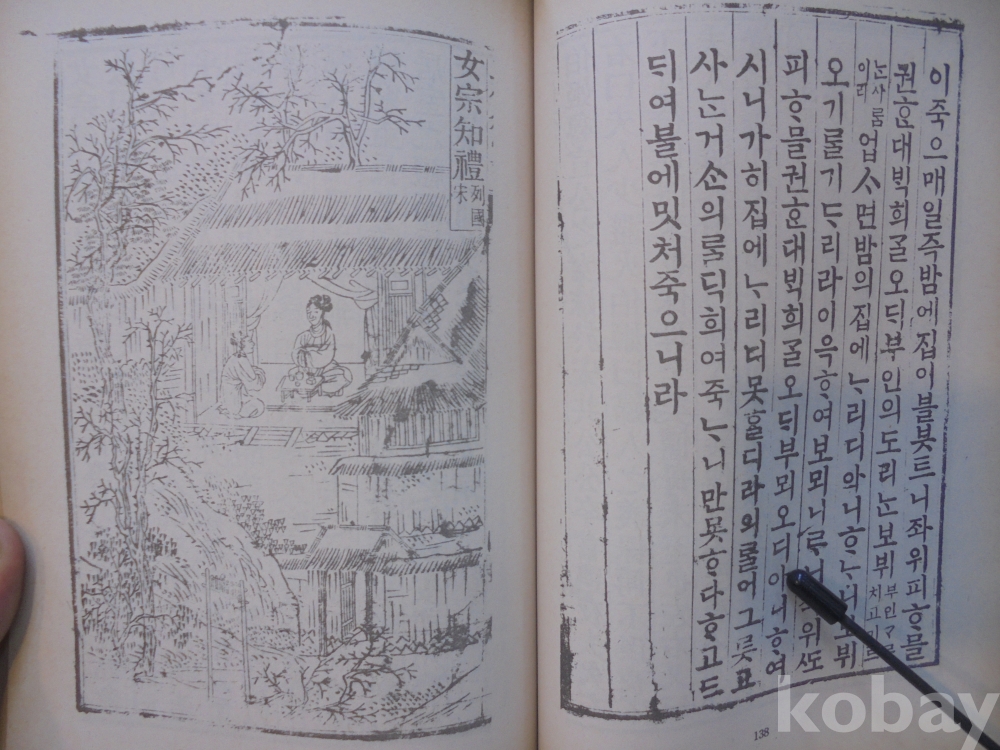 이죽으매일즉밤에집이블븟트니좌위피ᄒᆞ믈
권ᄒᆞᆫ대ᄇᆡᆨ희ᄀᆞᆯ오ᄃᆡ부인의도리ᄂᆞᆫ보뷔부인ᄀᆞᄅ치고
ᄂᆞᆫ사ᄅᆞᆷ이라업ᄉᆞ면밤의집에ᄂᆞ리디아니ᄒᆞᄂᆞ니보뷔
오기ᄅᆞᆯ기ᄃᆞ리라이윽ᄒᆞ여보뫼니ᄅᆞ위ᄯᅩ
피ᄒᆞ믈권ᄒᆞᆫ대ᄇᆡᆨ희ᄀᆞᆯ오ᄃᆡ부뫼오디아니ᄒᆞ여
시니가히집에ᄂᆞ리디못ᄒᆞᆯ디라의ᄅᆞᆯ어그릇고
사ᄂᆞᆫ거손의ᄅᆞᆯ딕희여죽ᄂᆞ니만못ᄒᆞ다ᄒᆞ고드
ᄃᆡ여블에밋처죽으니라
138
女宗知禮 列國宋
kobay